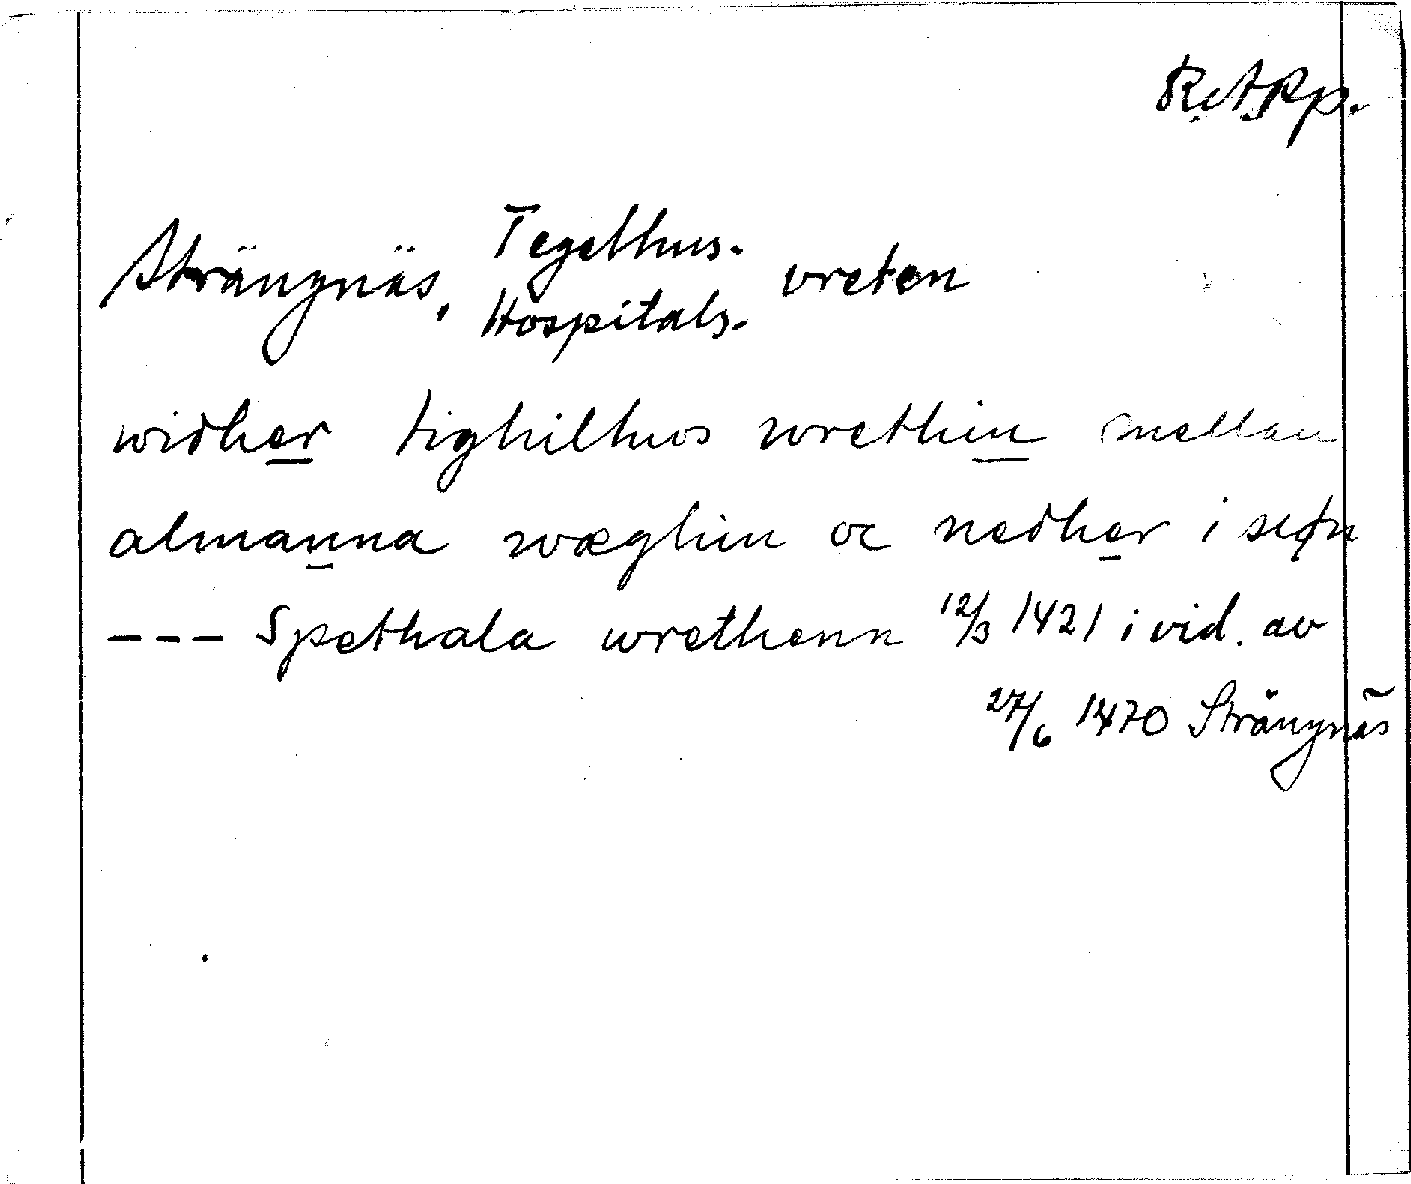 R.A. Pp.
Strängnäs, Tegelhus- vreten
Hospitals-
widher tighilhus wrethin mellan
almanna wæghin oc nedher i siøn
--- Spethala wrethenn 12/3 1421 i vid. av
27/6 1470 Strängnäs